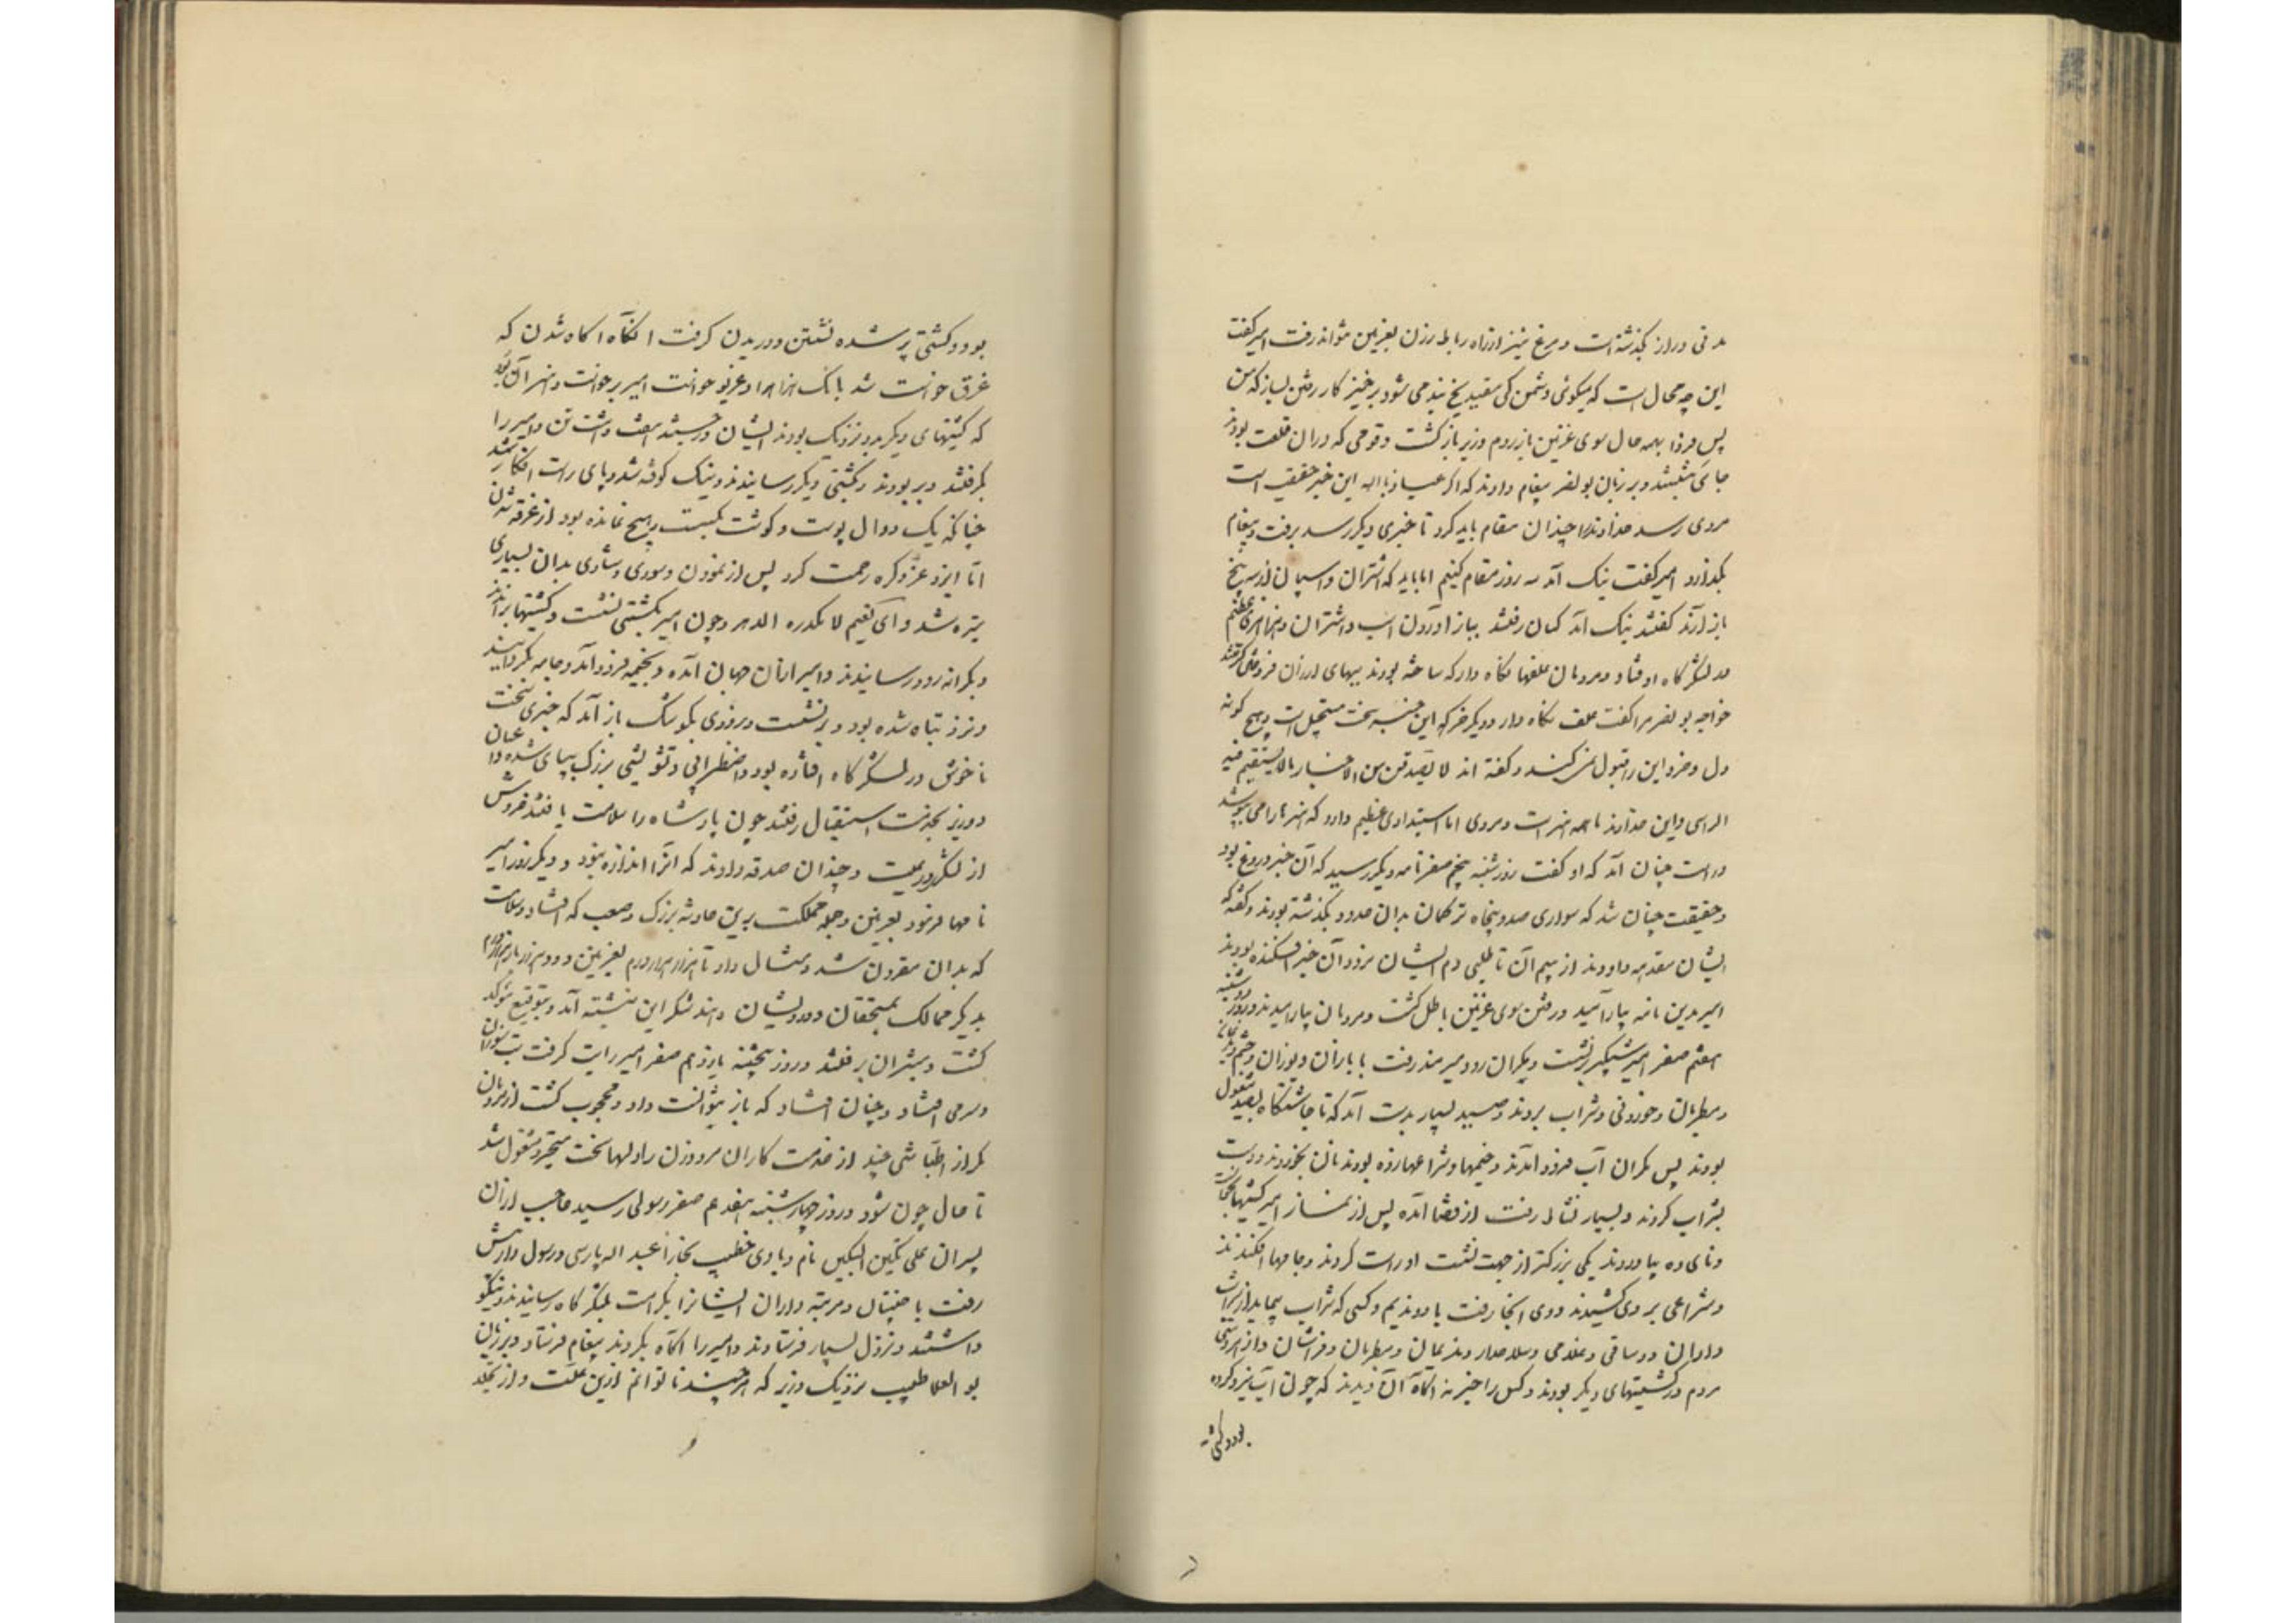 مدتی دراز بگذشته است و مرغ نیز از راه رباط رزن بغزنین نتواند رفت امیر گفت
این چه محال است که میگوئی دشمن کی سفید یخ بند می شود برخیز کار رفتن بساز که من
پس فردا بهمه حال سوی غزنین باز روم وزیر باز گشت و قومی که دران قلعت بودند
جائی بنشستند و بر زبان بونصر پیغام دادند که اگر عیاذ بالله این خبر حقیقت است
مردی رسد خداوند را چندان مقام باید کرد تا خبری دیگر رسد برفت و پیغام
بگذارد امیر گفت نیک آمد سه روز مقام کنیم اما باید که اشتران و اسپان از سه پنج
باز آرند گفتند نیک آمد کسان رفتند بباز آوردن اسپ و اشتران و هزاهزی عظیم
در لشکرگاه اوفتاد و مردمان علفها نگاه دار که ساخته بودند ببهای ارزان فروختن گرفتند
خواجه بونصر مرا گفت علف نگاه دار و دیگر خر که این خبر سخت مستحیل است و بهیچ گونه
دل و خرد این را قبول نمی کند و گفته اند لا تصدقن من الاخبار مالا یستقیم فیه
الرای و این خداوند ما همه هنر است و مردی اما استبدادی عظیم دارد که هنرها را می پوشد
و راست چنان آمد که او گفت روز شنبه پنجم صفر نامه دیگر رسید که آن خبر دروغ بود
و حقیقت چنان شد که سواری صد و پنجاه ترکمان بدان حدود بگذشته بودند و گفته که
ایشان مقدمه داودند از بیم آن تا طلبی دم ایشان نرود آن خبر افکنده بودند
امیر بدین نامه بیارامید و رفتن سوی غزنین باطل گشت و مردمان بیارامیدند و روز دوشنبه
هفتم صفر امیر شبگیر برنشست و بکران رود هیرمند رفت با بازان و یوزان و حشم و ندیمان
و مطربان و خوردنی و شراب بردند و صید بسیار بدست آمد که تا چاشتگاه بصید مشغول
بودند پس بکران آب فرود آمدند و خیمها و شراعها زده بودند نان بخوردند و دست
بشراب کردند و بسیار نشاط رفت از قضا آمده پس از نماز امیر کشتیها بخواست
و نای ده بیاوردند یکی بزرگتر از جهت نشست او راست کردند و جامها افکندند
و شراعی بر وی کشیدند و وی آنجا رفت با دو ندیم و کسی که شراب پیماید از شراب
داران و دو ساقی و غلامی و سلاحدار و ندیمان و مطربان و فراشان و از هر دستی
مردم در کشتیهای دیگر بودند و کس را خبر نه آنگاه آن دیدند که چون آب نیرو کرده
بود و کشتی
بود و کشتی پر شده نشستن و دریدن گرفت آنگاه آگاه شدن که
غرق خواست شد بانگ هزاهز و غریو خواست امیر برخواست و هنر آن بود
که کشتیهای دیگر بدو نزدیک بودند ایشان در جستند هفت و هشت تن و امیر را
بگرفتند و بربودند و بکشتی دیگر رسانیدند و نیک کوفته شد و پای راست افکار شد
چنانکه یک دوال پوست و گوشت بگسست و هیچ نمانده بود از غرقه شدن
اما ایزد عز ذکره رحمت کرد پس از نمودن و سوری و شادی بدان بسیاری
تیره شد و ای نعیم لا یکدره الدهر و چون امیر بکشتی نشست و کشتیها براندند
و بکرانه رود رسانیدند و امیر ازان جهان آمده و بخیمه فرود آمد و جامه بگردانید
و تر و تباه شده بود و برنشست و بزودی بکوشک باز آمد که خبری سخت
ناخوش در لشکرگاه افتاده بود و اضطرابی و تشویشی بزرگ بپای شده و اعیان
و وزیر بخدمت استقبال رفتند چون پادشاه را سلامت یافتند خروش
از لشکر و رعیت و چندان صدقه دادند که آنرا اندازه نبود و دیگر روز امیر
نامها فرمود بغزنین و جمله مملکت برین حادثه بزرگ و صعب که افتاد و سلامت
که بدان مقرون شد و مثال داد تا هزار هزار درم بغزنین و دو هزار بار هزار درم
بدیگر ممالک بمستحقان و درویشان دهند شکر این نبشته آمد و بتوقیع مؤکد
گشت و مبشران برفتند و روز پنجشنبه یازدهم صفر امیر را تب گرفت تب سوزان
و سرمی افتاد و چنان افتاد که بار نتوانست داد و محجوب گشت از مردمان
مگر از اطبا و تنی چند از خدمت کاران مرد و زن را و دلها سخت متحیر و مشغول شد
تا حال چون شود و روز چهارشنبه هفدهم صفر رسولی رسید حاجب ازان
پسران علی تکین البتکین نام و با وی خطیب بخارا عبد الله پارسی و رسول دار پیش
رفت با جنیبتان و مرتبه داران ایشانرا بکرامت بلشکرگاه رسانیدند و نیکو
داشتند و نزل بسیار فرستادند و امیر را آگاه بکردند پیغام فرستاد و بر زبان
بو العلا طبیب نزدیک وزیر که هر چند ناتوانم ازین علت و از تجلد